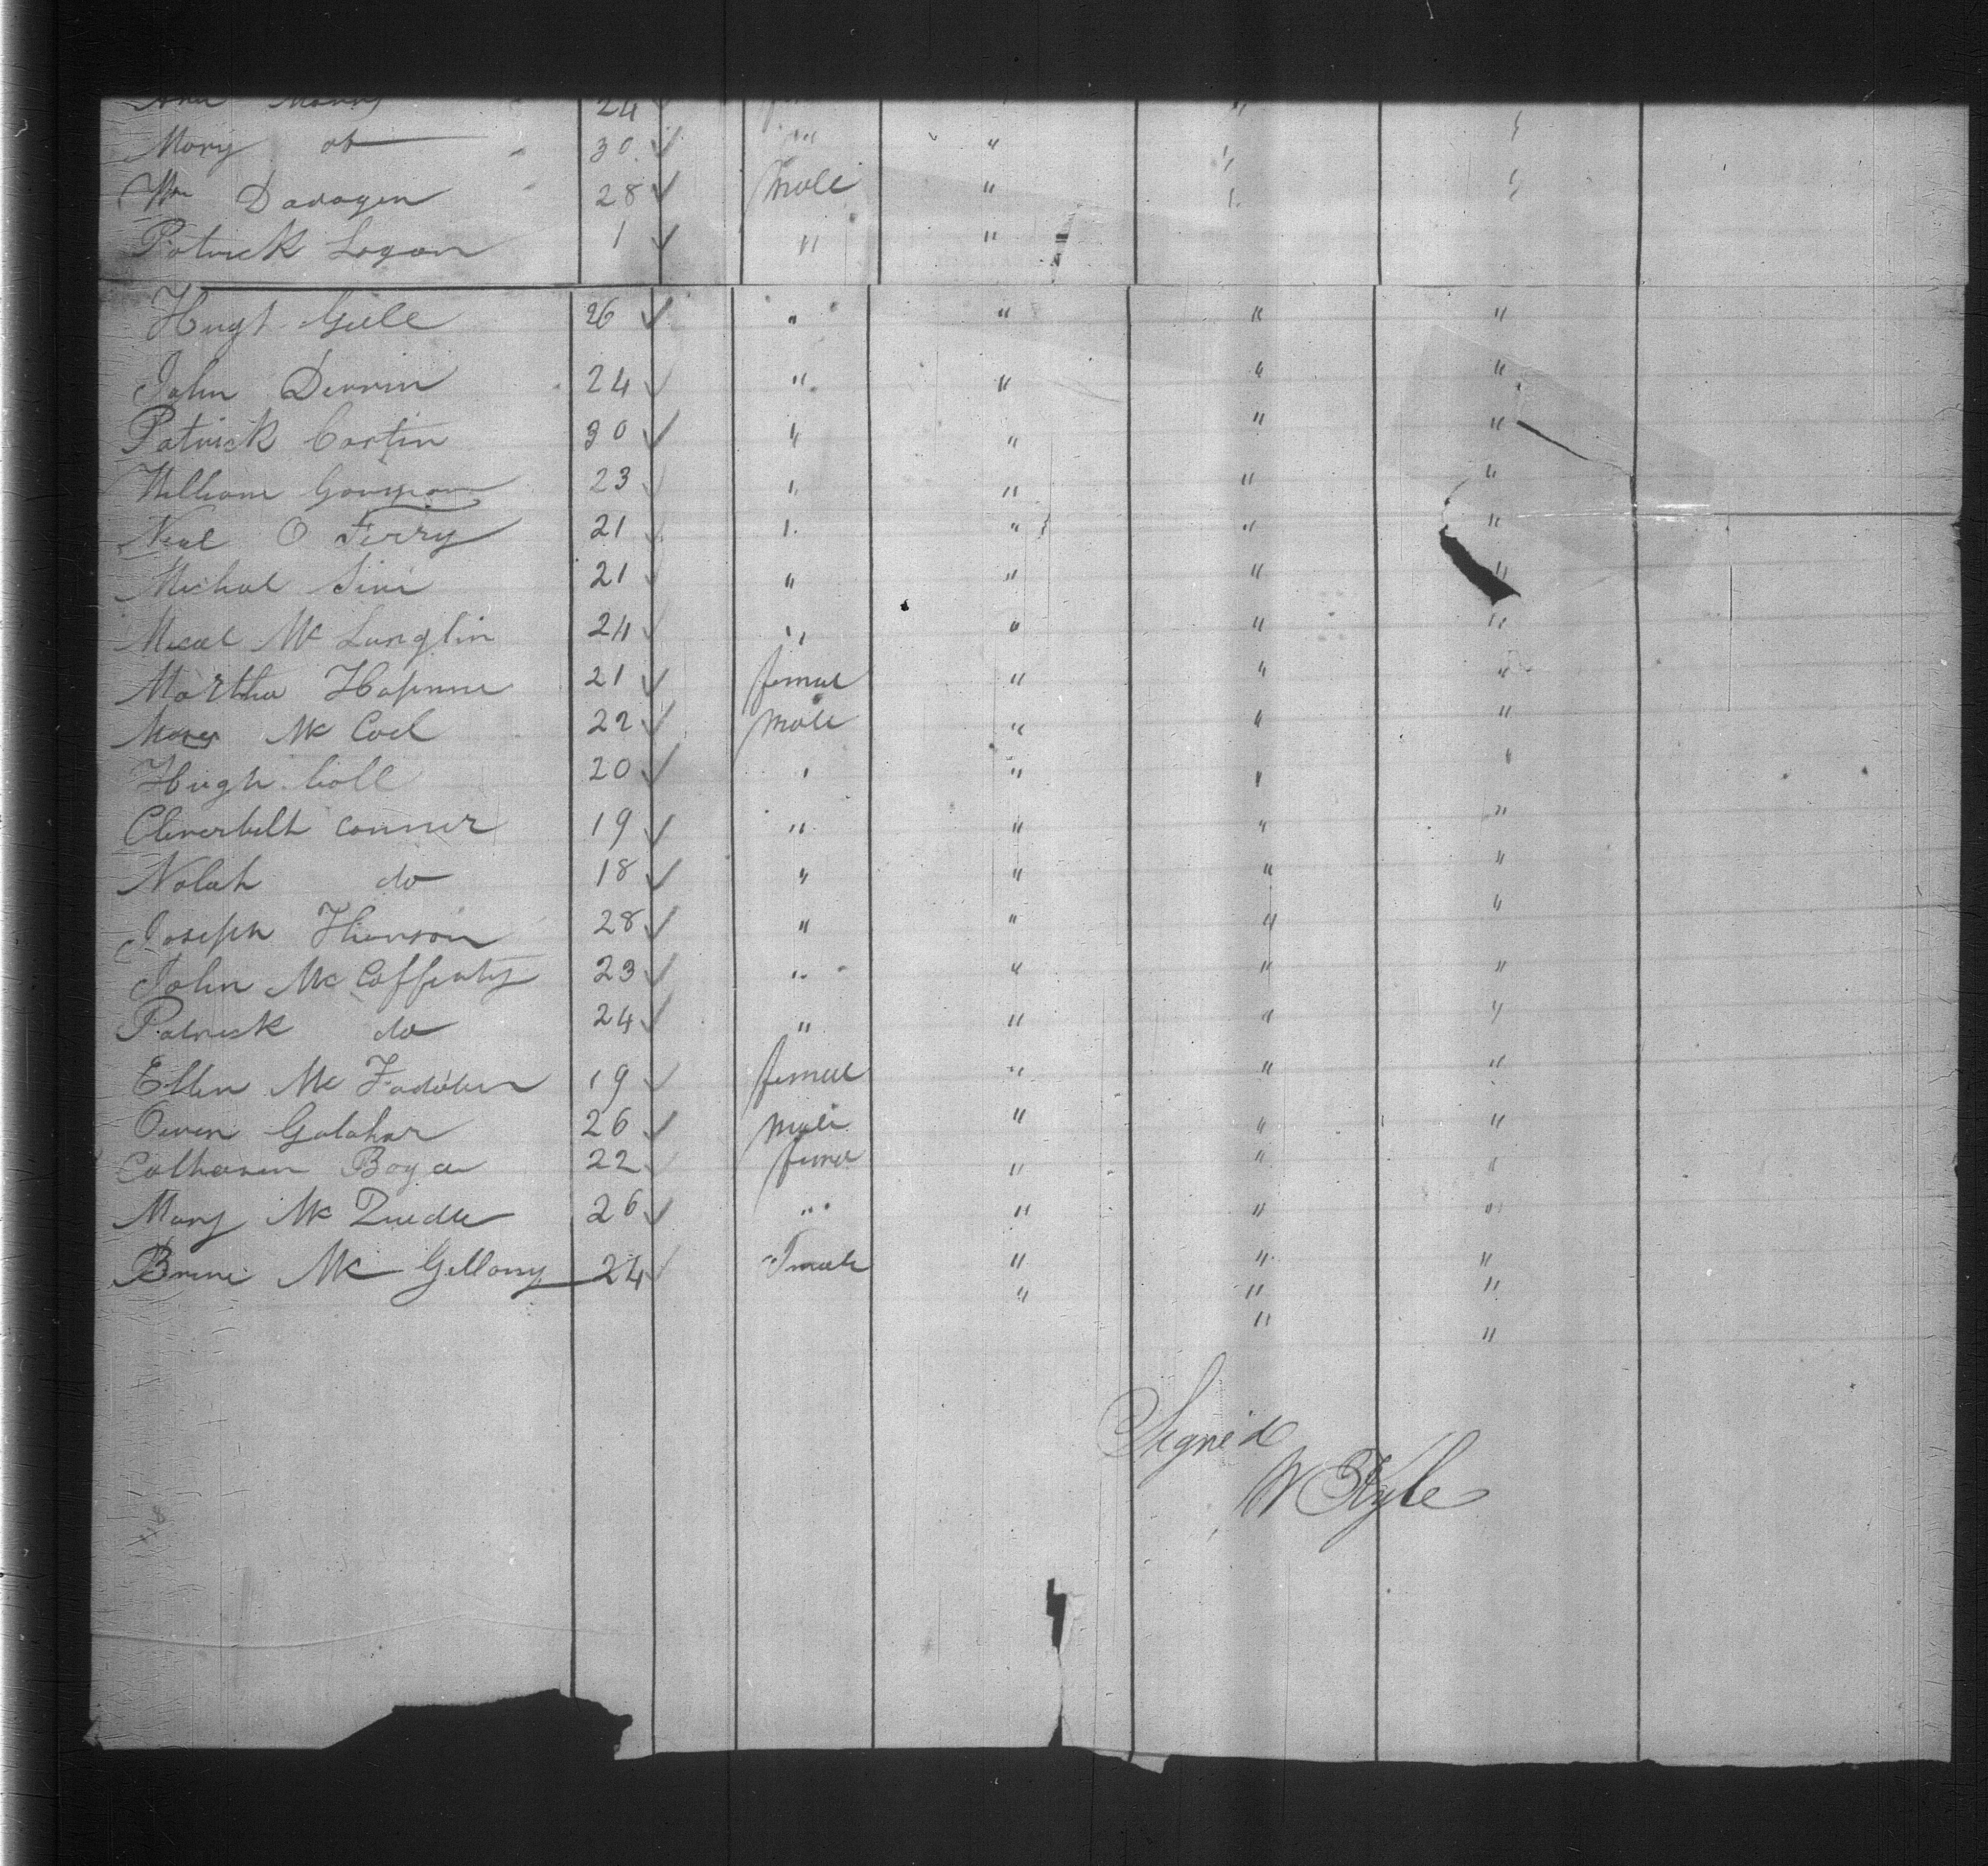 24
Mary do 30 " " " "
Wm Davagen 28 Male " " "
Patrick Logan 1 " "
Hugh Gill 26 " " " "
John Devrin 24 " " " "
Patrick Costin 30 " " " "
William 23 " " " "
Neal O Ferry 21 " " " "
Michal Sini 21 " " " "
Mical Mc Langlin 24 " " " "
Martha 21 femal " " "
Mc Coll 22 Male " " "
Hugh Coll 20 " " " "
conner 19 " " " "
Nolah do 18 " " " "
Joseph Thomson 28 " " " "
John Mc Cafferty 23 " " " "
Patrick do 24 " " " "
Ellen Mc Fadden 19 female " " "
Owen Galahar 26 Male " " "
Catharen 22 femal " " "
Mary Mc 26 " " " "
Mc Gillany 24 " " "
" " "
" "
Signed
W Kyle